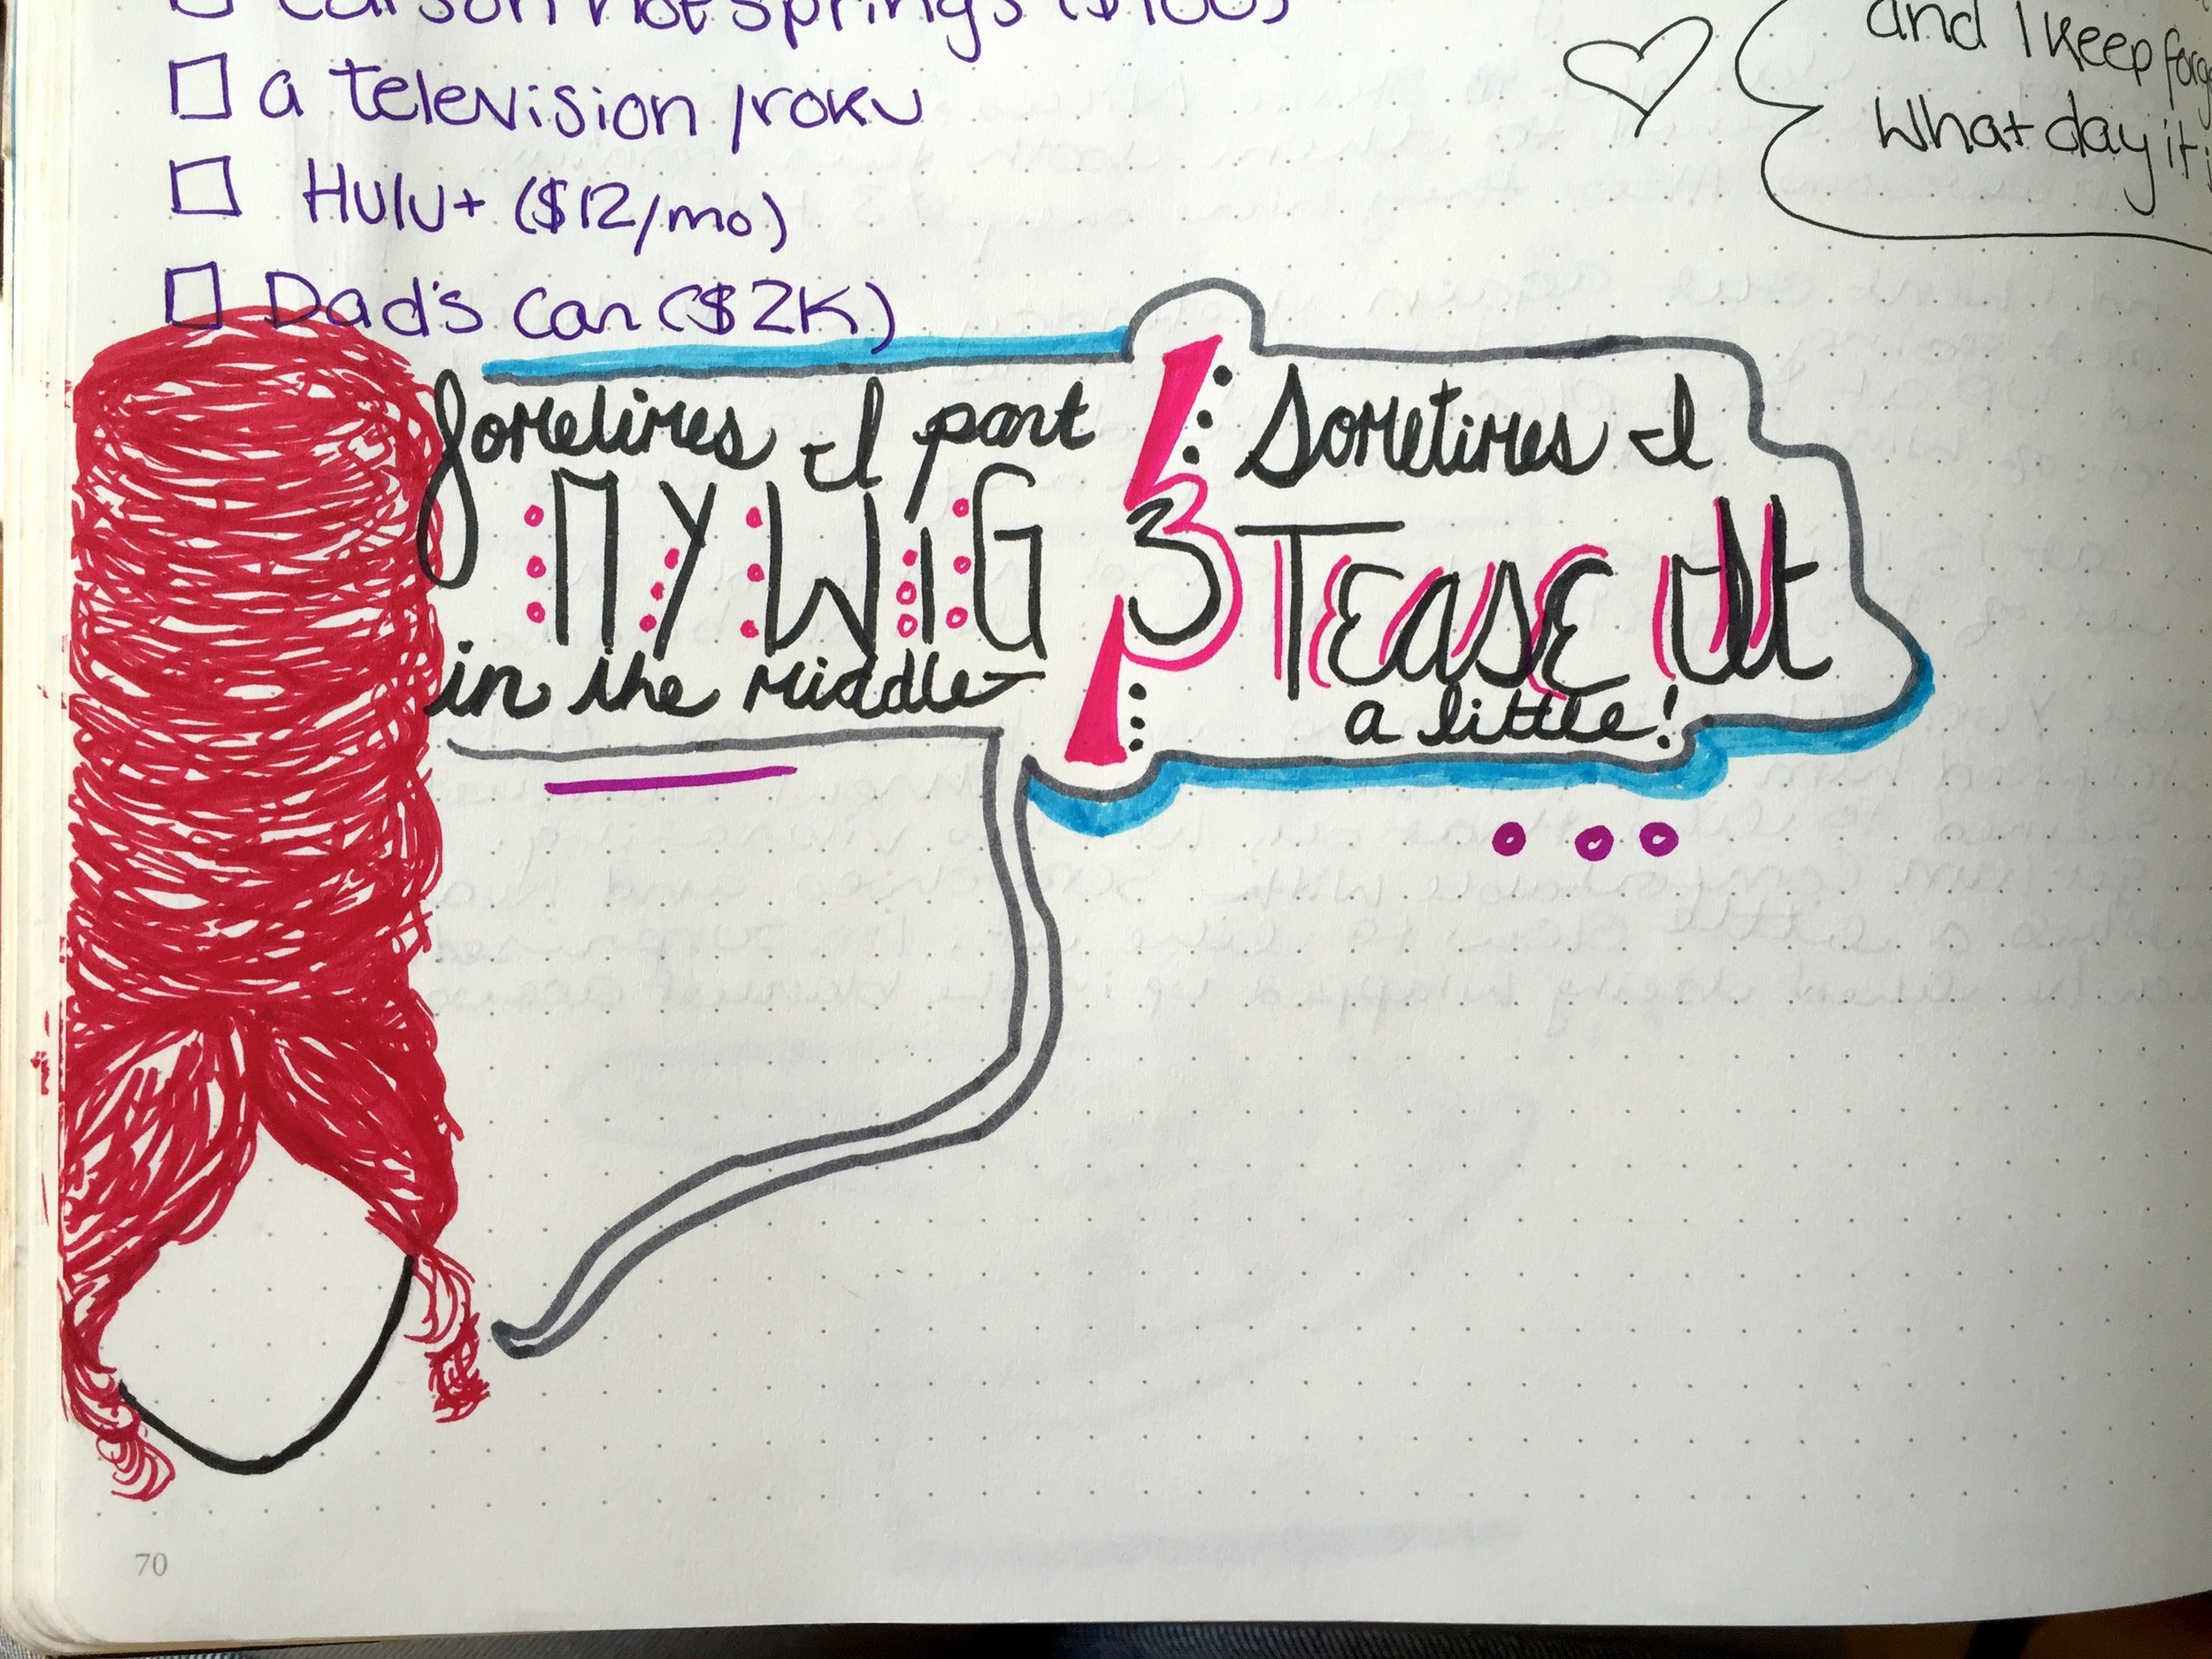 Carson hot springs ($100)
a television/roku
Hulu+ ($12/mo)
Dad's car ($2K)
and I keep
What day it
Sometimes I part
MY WIG
in the middle-
&
Sometimes I
TEASE it
a little!
70